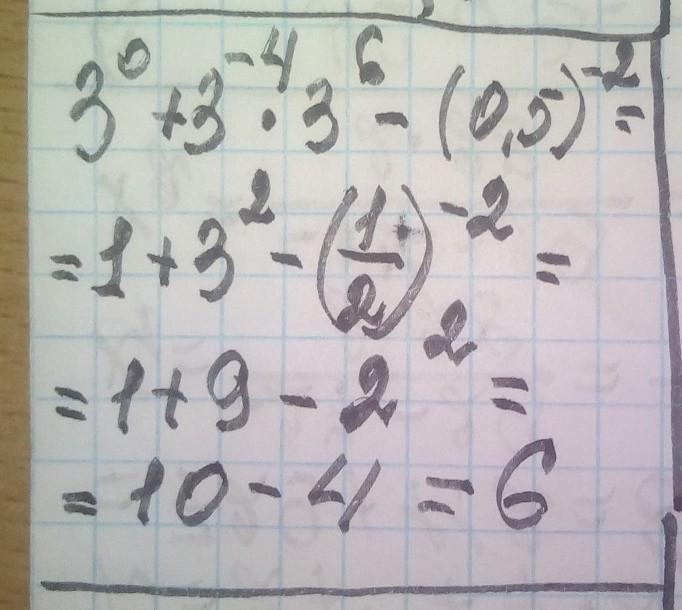 3⁰ + 3⁻⁴ · 3⁶ - (0,5)⁻² =
= 1 + 3² - (1/2)⁻² =
= 1 + 9 - 2² =
= 10 - 4 = 6